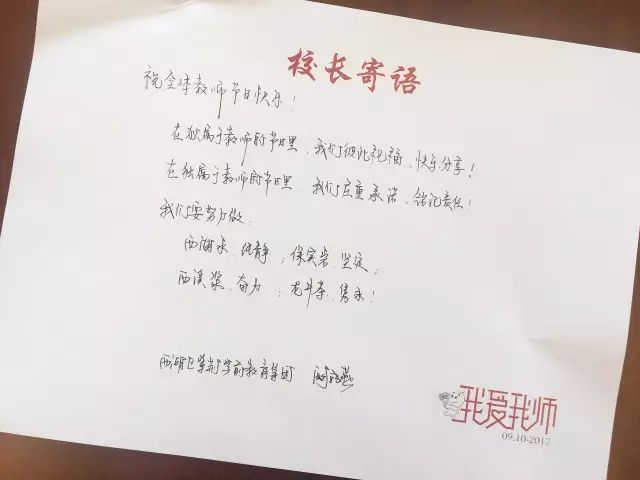 校长寄语
祝全体教师节日快乐！
在独属于教师的节日里、我们彼此祝福、快乐分享！
在独属于教师的节日里、我们庄重承诺、铭记责任！
我们要努力做：
西湖水、纯静；保实岩、坚定；
西溪桨、奋力；龙井茶、隽永！
西湖区紫荆学前教育集团
我爱我师
09.10-2017